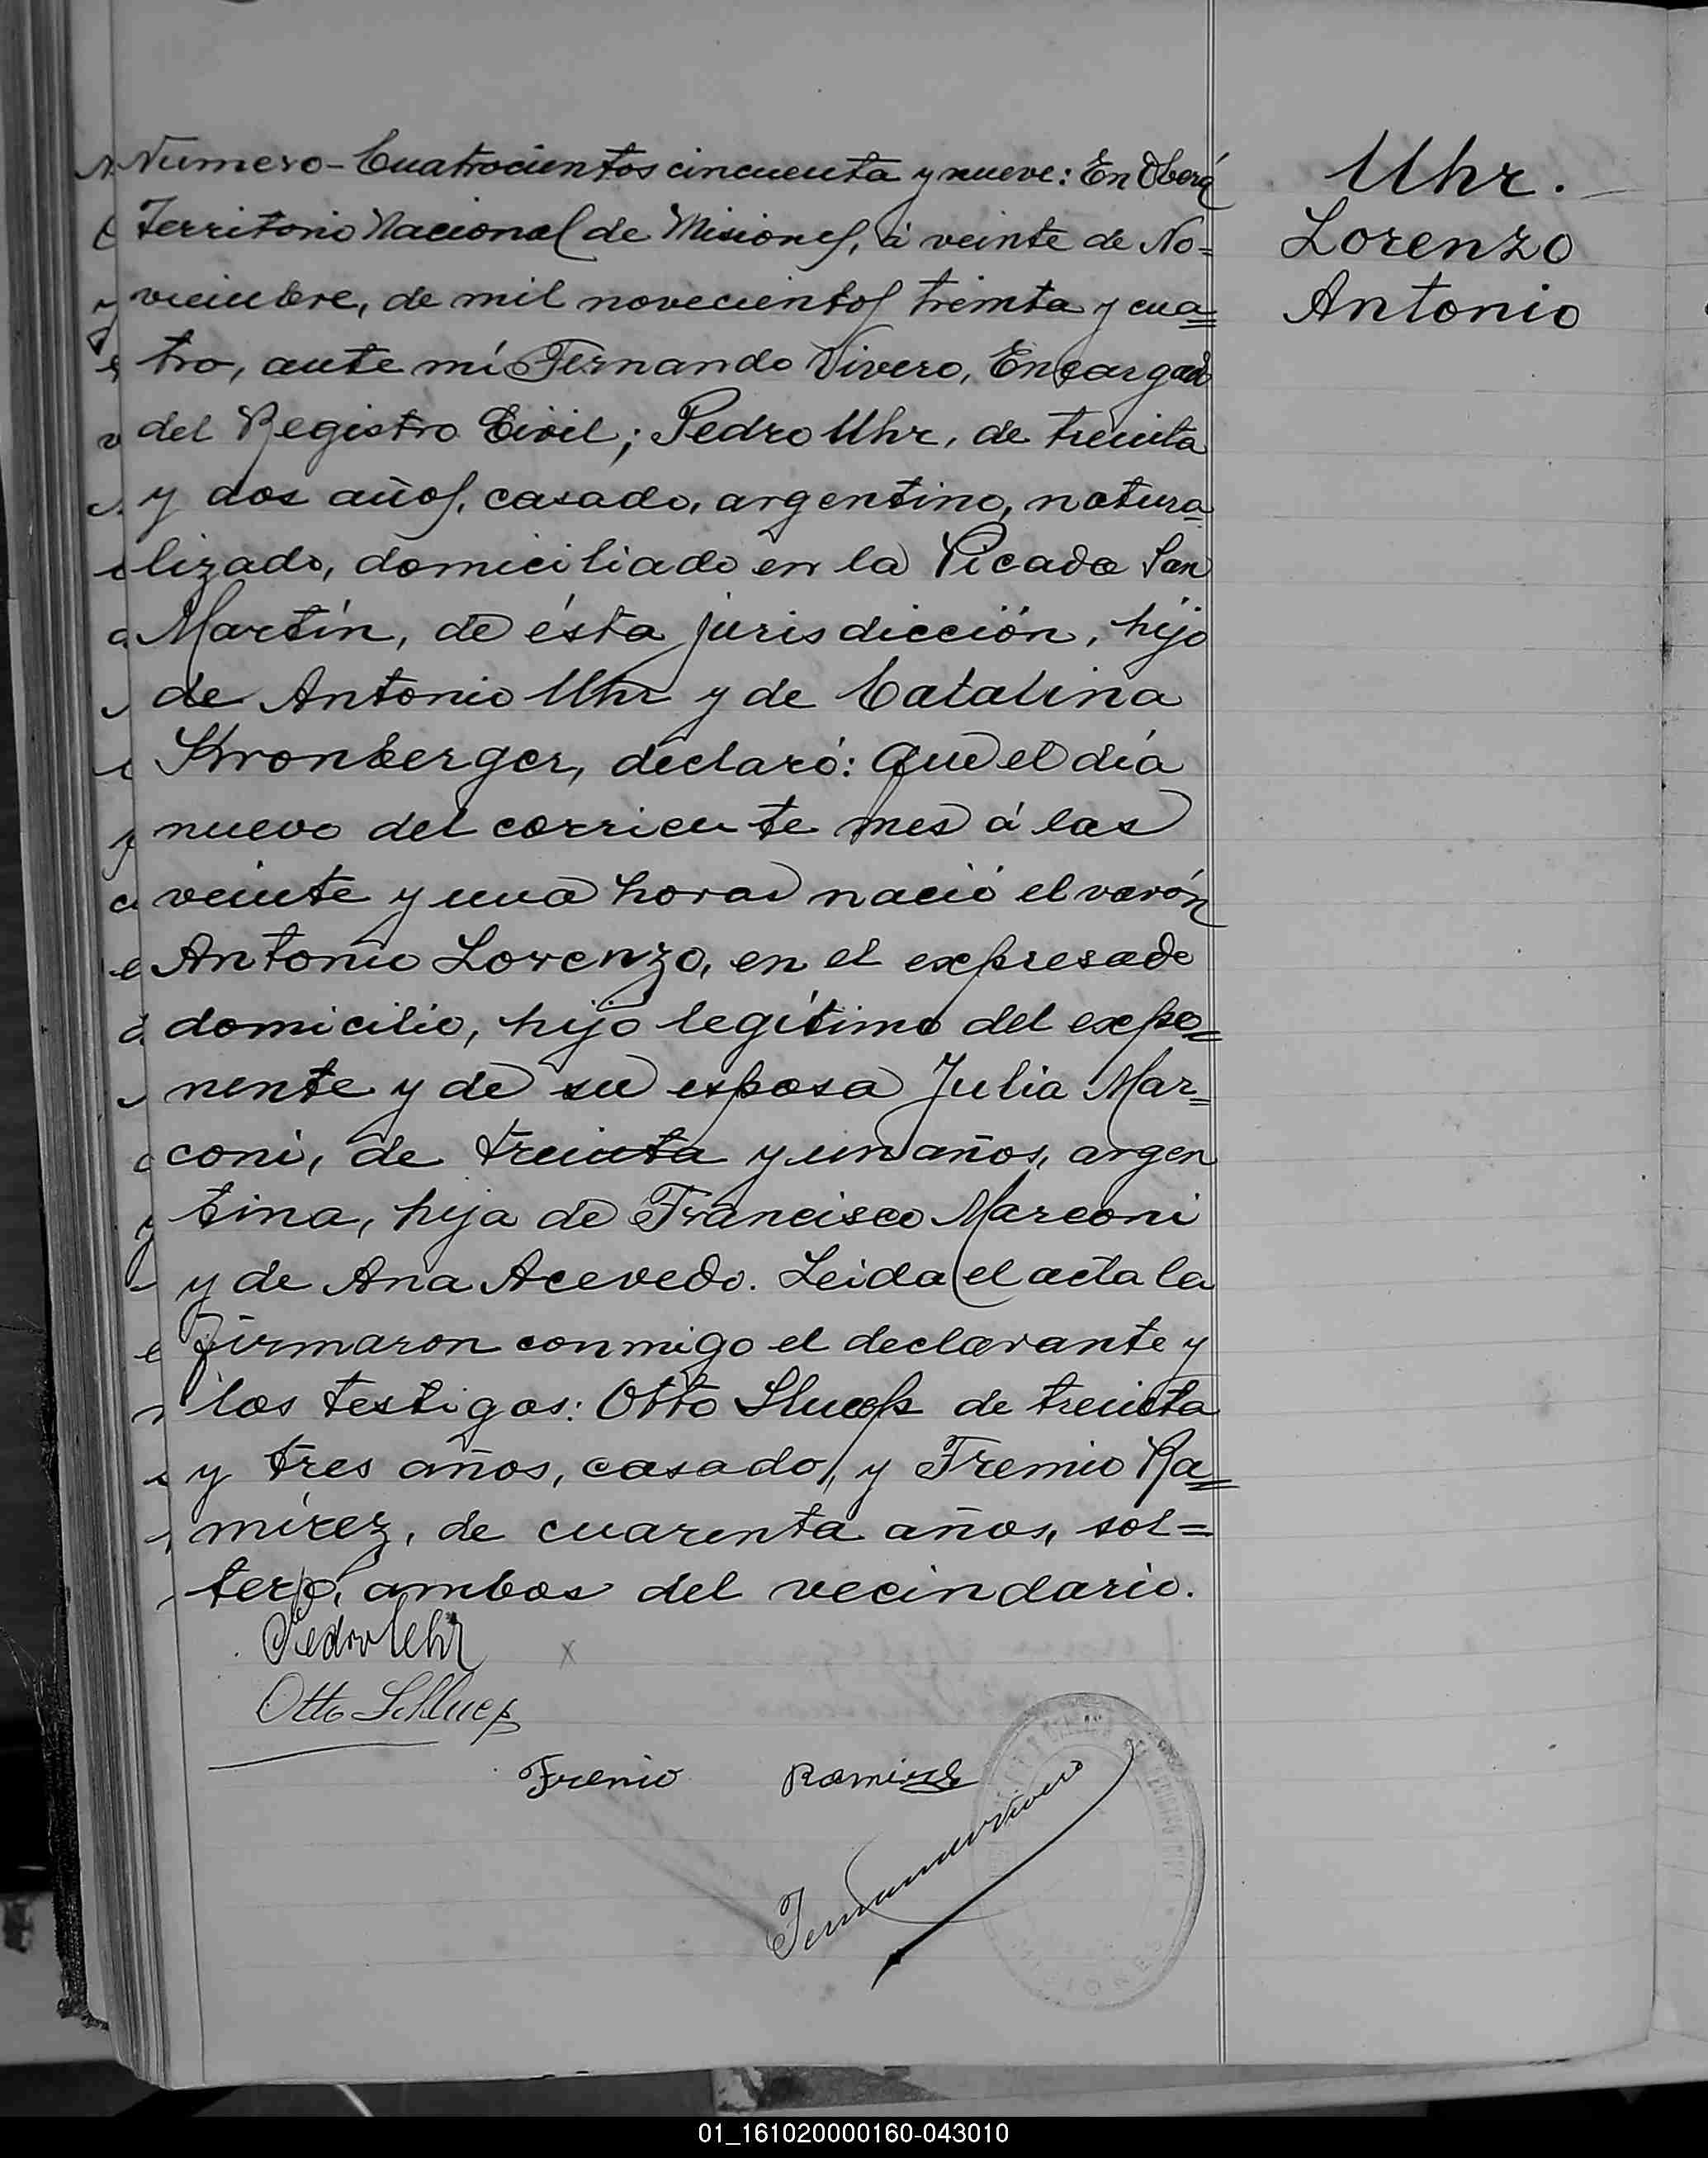 Número - Cuatrocientos cincuenta y nueve: En Oberá
Territorio Nacional de Misiones, á veinte de No=
viembre, de mil novecientos treinta y cua=
tro, ante mí Fernando Vivero, Encargado
del Registro Civil; Pedro Uhr, de treinta
y dos años, casado, argentino, natura
lizado, domiciliado en la Picada San
Martín, de ésta jurisdicción, hijo
de Antonio Uhr y de Catalina
Kronberger, declaró: Que el día
nueve del corriente mes á las
veinte y una horas nació el varón
Antonio Lorenzo, en el expresado
domicilio, hijo legítimo del expo=
nente y de su esposa Julia Mar=
coni, de treinta y un años, argen
tina, hija de Francisco Marconi
y de Ana Acevedo. Leida el acta la
firmaron conmigo el declarante y
los testigos: Otto de treinta
y tres años, casado, y Fremio Ra=
mírez, de cuarenta años, sol=
tero, ambos del vecindario.
Pedro Uhr
x
Otto Schluep
Frenio Ramirez
Fernando Vivero
MISIONES
Uhr.
Lorenzo
Antonio
01_161020000160-043010